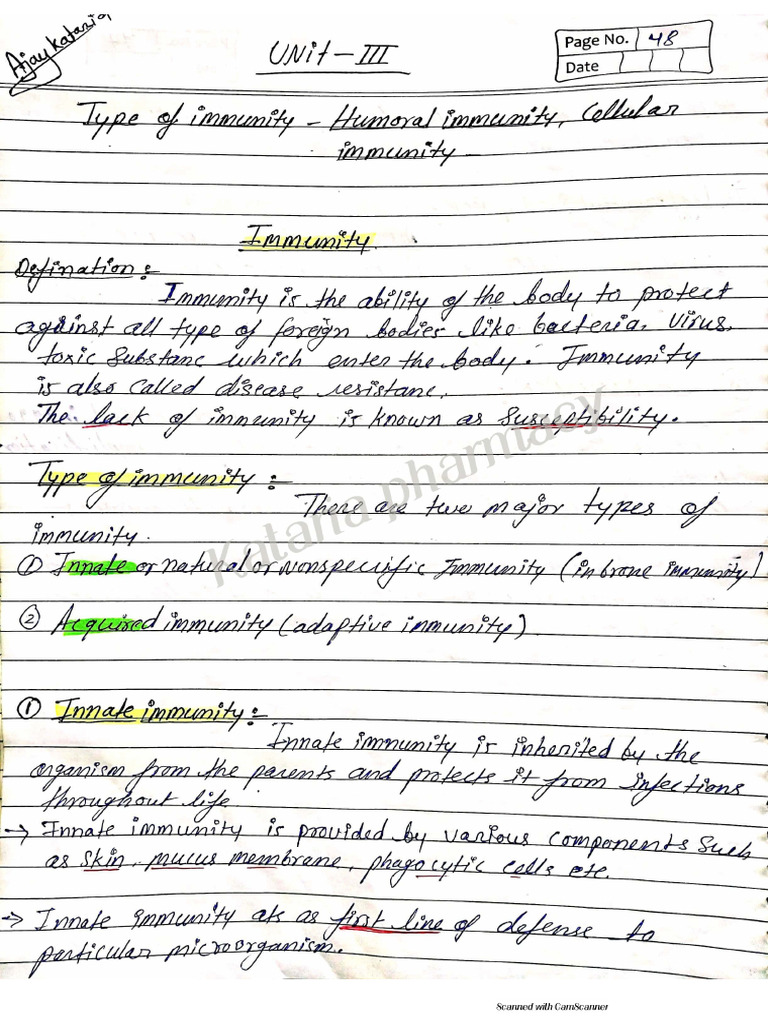 Ajay Kataria
UNit-III
Page No. 48
Date
Type of immunity - Humoral immunity, Cellular
immunity
Immunity
Defination:-
Immunity is the ability of the body to protect
against all type of foreign bodies like bacteria, virus,
toxic substanc which enter the body. Immunity
is also called disease resistanc.
The lack of immunity is known as susceptibility.
Type of immunity :-
There are two major types of
immunity.
① Innate or natural or Nonspecific Immunity (inbrone immunity)
② Acquired immunity (adaptive immunity)
① Innate immunity:-
Innate immunity is inherited by the
organism from the parents and protects it from infections
throughout life.
→ Innate immunity is provided by various components such
as skin, mucus membrane, phagocytic cells etc.
→ Innate immunity ats as first line of defense to
particular microorganism.
Kataria pharmacy
Scanned with CamScanner